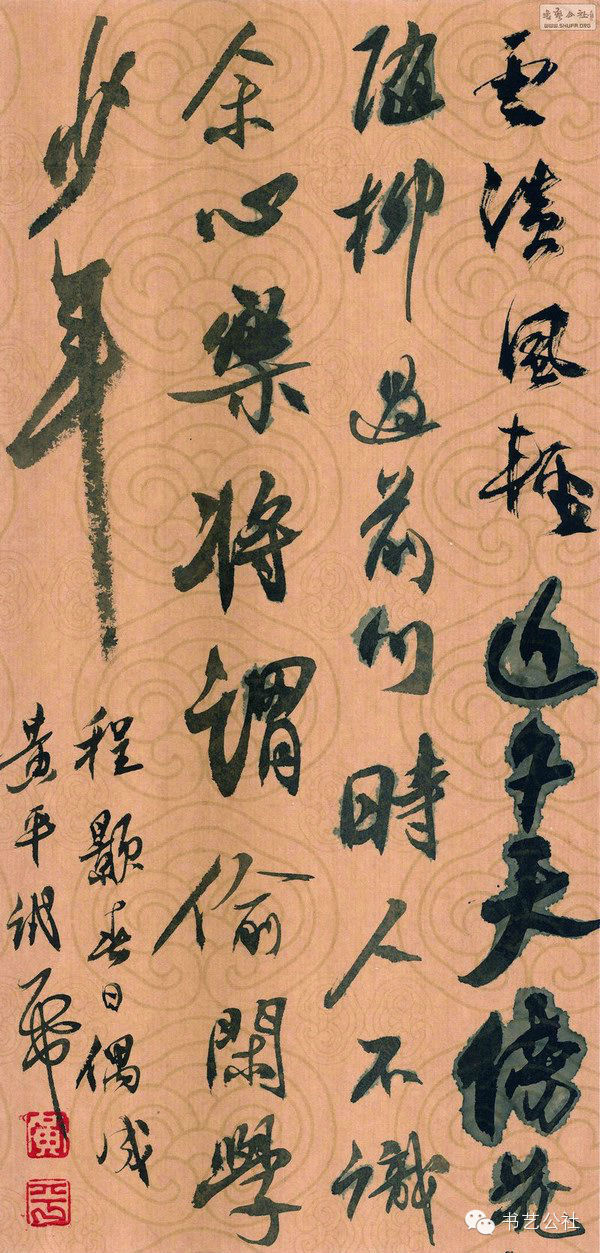 雲淡風輕近午天傍花
随柳過前川時人不識
余心樂將謂偷閑學
少年
程顥春日偶成
黄平
黄
平
书艺公社
WWW.SHUFA.ORG
书艺公社